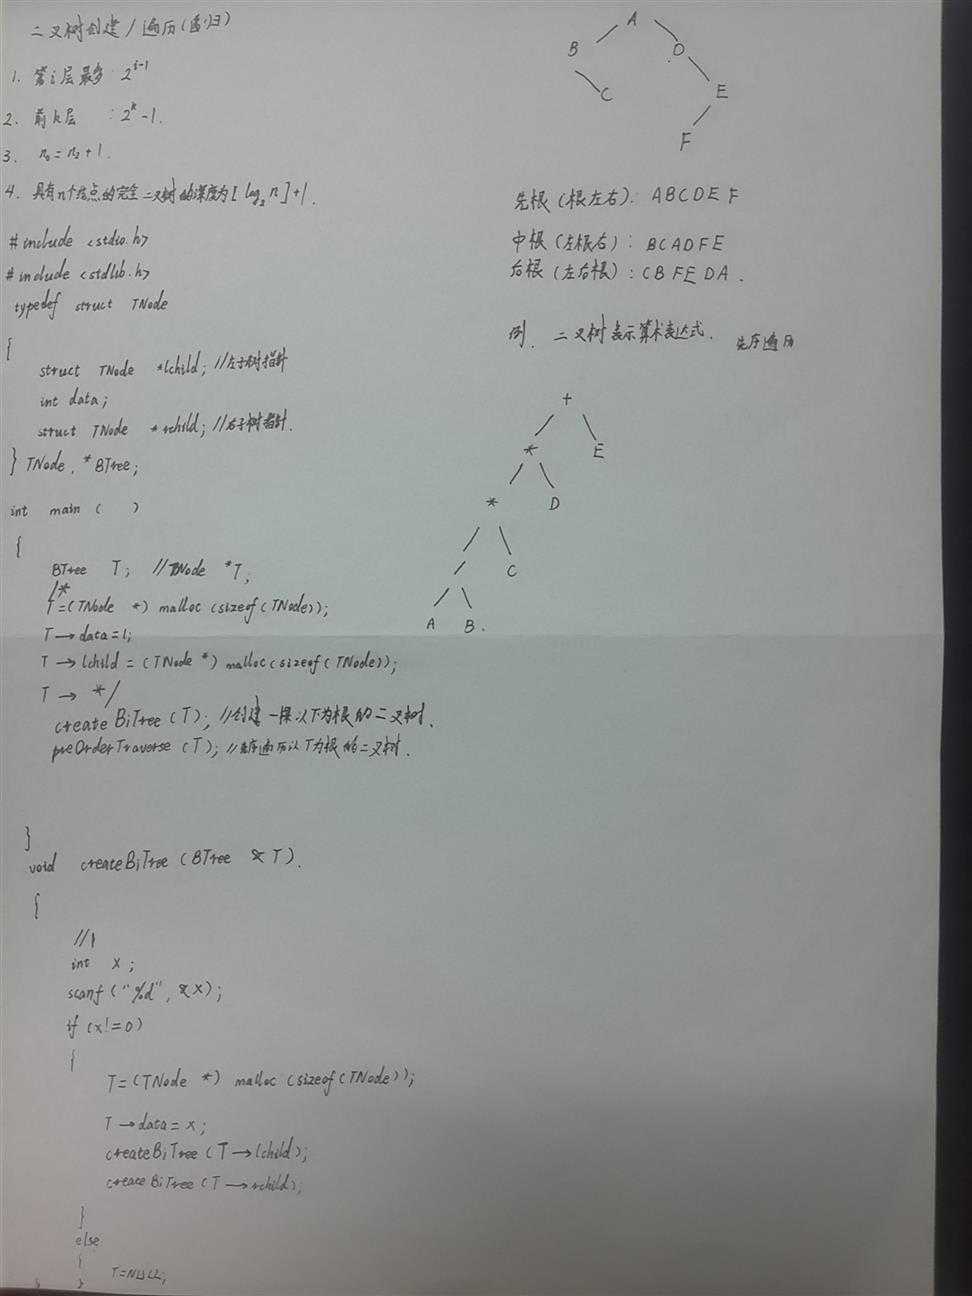 二叉树创建/遍历(递归)
1. 第i层最多: 2^{i-1}
2. 前k层 : 2^k-1.
3. n₀=n₂+1.
4. 具有n个结点的完全二叉树的深度为[log₂n]+1.
#include <stdio.h>
#include <stdlib.h>
typedef struct TNode
{
struct TNode *lchild; //左子树指针
int data;
struct TNode *rchild; //右子树指针.
} TNode, *BTree;
int main ( )
{
BTree T; //TNode *T,
/*
T=(TNode *) malloc (sizeof(TNode));
T→data=1;
T→lchild = (TNode *) malloc(sizeof(TNode));
T→ */
createBiTree (T); //创建一棵以下为根的二叉树.
preOrderTraverse (T); //先序遍历以T为根的二叉树.
}
void createBiTree (BTree & T).
{
//1
int x;
scanf ("%d", &x);
if (x!=0)
{
T=(TNode *) malloc (sizeof(TNode));
T→data=x;
createBiTree (T→lchild);
createBiTree (T→rchild);
}
else
{
T=NULL;
}
}
A
B D
C E
F
先根(根左右): ABCDEF
中根(左根右): BCADFE
后根(左右根): CBFEDA.
例. 二叉树表示算术表达式. 先序遍历
+
* E
* D
/ C
A B.